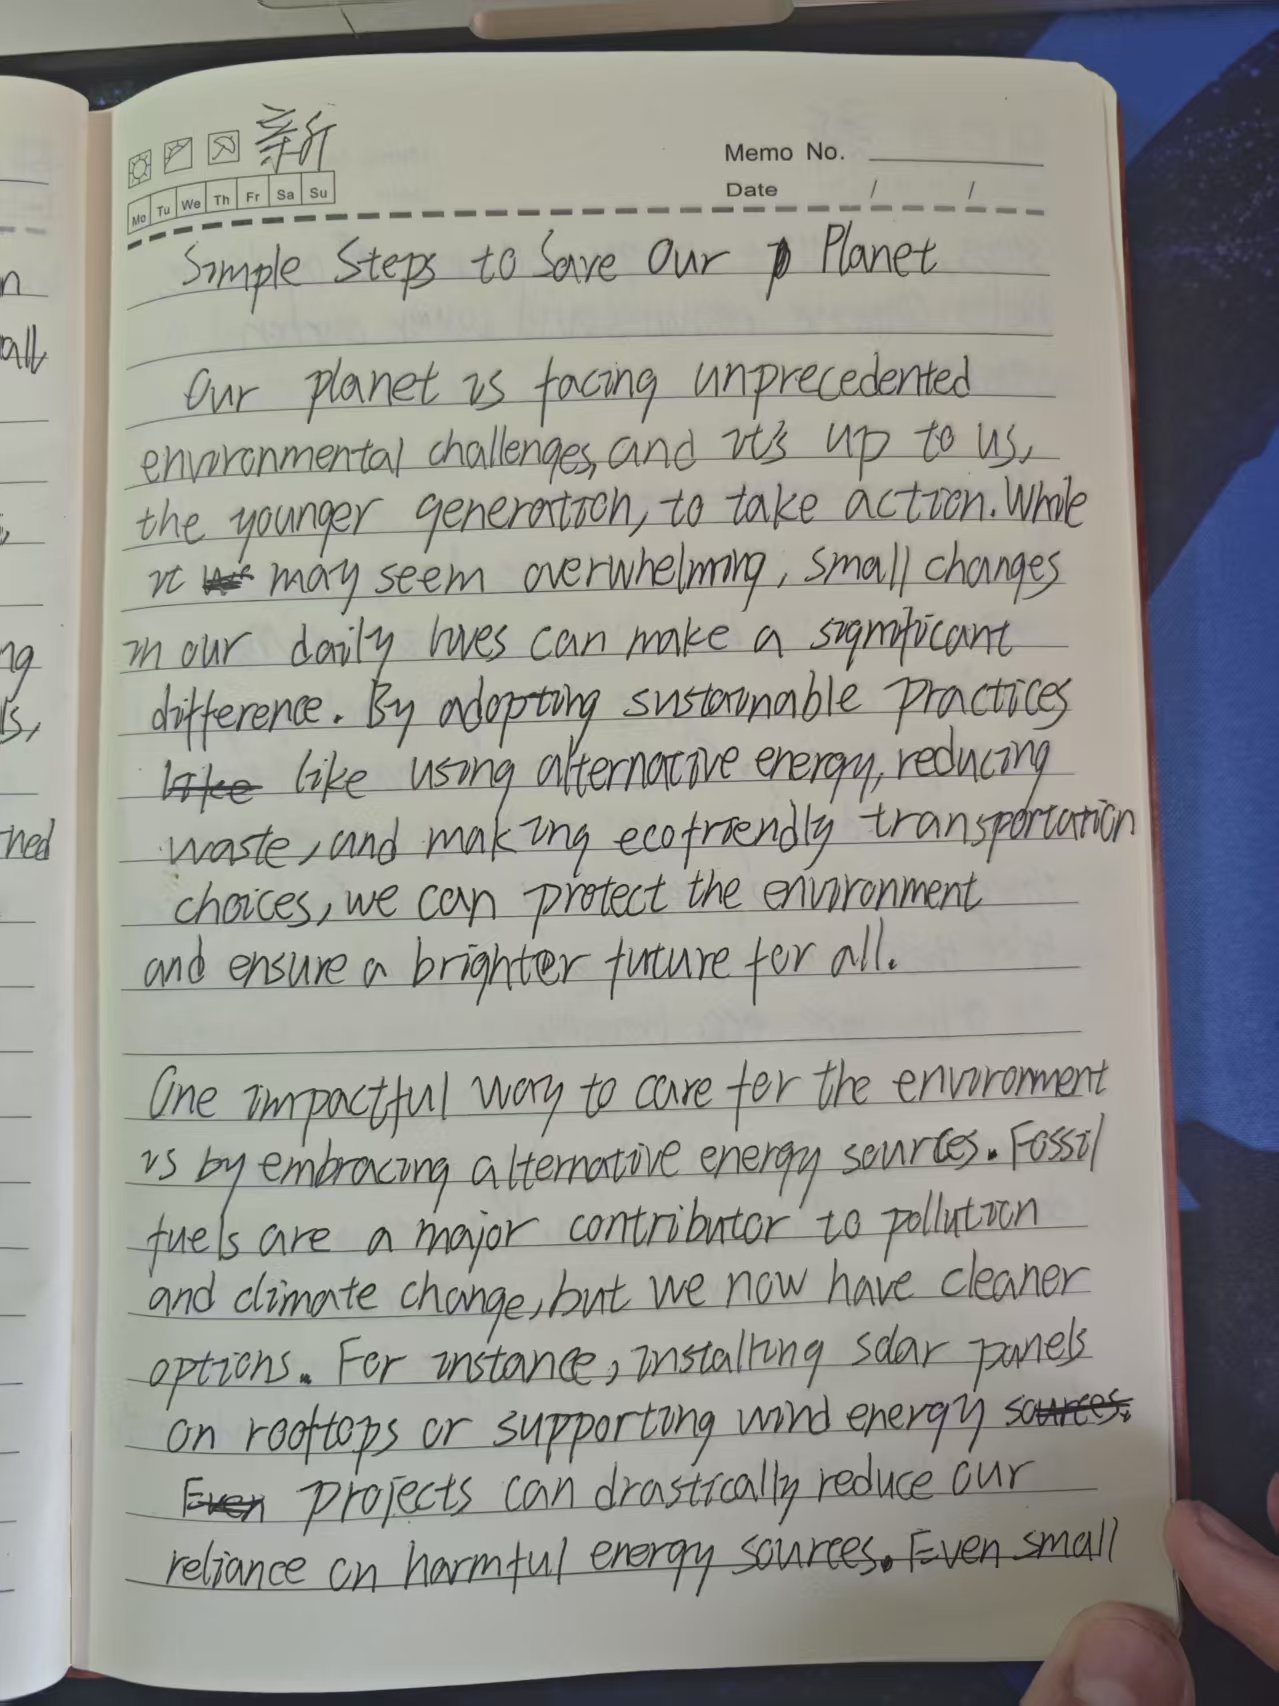 新
Memo No.
Mo Tu We Th Fr Sa Su
Date / /
Simple Steps to Save Our Planet
Our planet is facing unprecedented
environmental challenges, and it's up to us,
the younger generation, to take action. While
it may seem overwhelming, small changes
in our daily lives can make a significant
difference. By adopting sustainable practices
like like using alternative energy, reducing
waste, and making ecofriendly transportation
choices, we can protect the environment
and ensure a brighter future for all.
One impactful way to care for the environment
is by embracing alternative energy sources. Fossil
fuels are a major contributor to pollution
and climate change, but we now have cleaner
options. For instance, installing solar panels
on rooftops or supporting wind energy sources.
Even projects can drastically reduce our
reliance on harmful energy sources. Even small
n
all
ng
ls,
ned